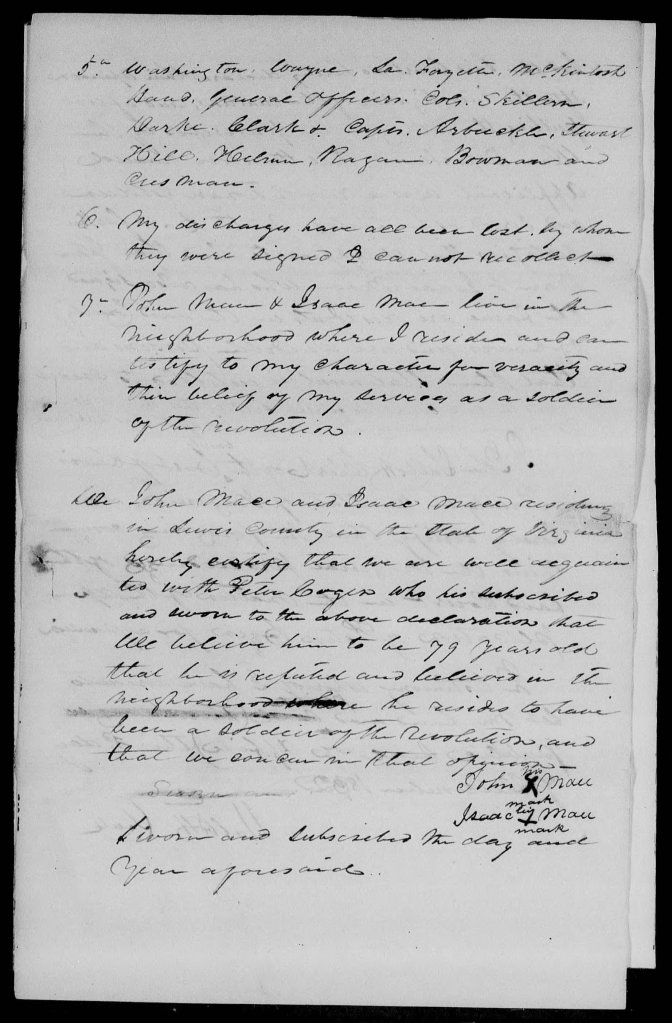 5th Washington, Wayne, La Fayette, McKintosh
Hand, General Officers. Cols. Skillern,
Darke, Clark & Capts. Arbuckle, Stuart
Hill, Helm, Ragan, Bowman and
Cresman.
6. My discharges have all been lost, by whom
they were signed I can not recollect
7th John Mace & Isaac Mace live in the
neighborhood where I reside and can
testify to my character for veracity and
their belief of my services as a soldier
of the revolution.
We John Mace and Isaac Mace residing
in Lewis County in the State of Virginia
hereby certify that we are well acquain
ted with Peter Coger who his subscribed
and sworn to the above declaration that
We believe him to be 79 years old
that he is reputed and believed in the
neighborhood where he resides to have
been a soldier of the revolution, and
that we concur in that opinion
John his X Mace
mark
Isaac his X Mace
mark
Sworn and subscribed the day and
Year aforesaid.